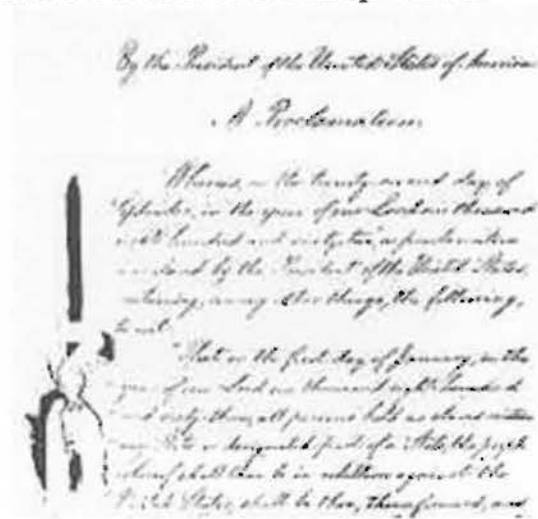 By the President of the United States of America
A Proclamation
Whereas, on the twenty-second day of
September, in the year of our Lord one thousand
eight hundred and sixty-two, a proclamation
issued by the President of the United States,
containing, among other things, the following,
to wit:
"That on the first day of January, in the
year of our Lord one thousand eight hundred
and sixty-three, all persons held as slaves within
any State or designated part of a State, the people
whereof shall then be in rebellion against the
United States, shall be then, thenceforward, and